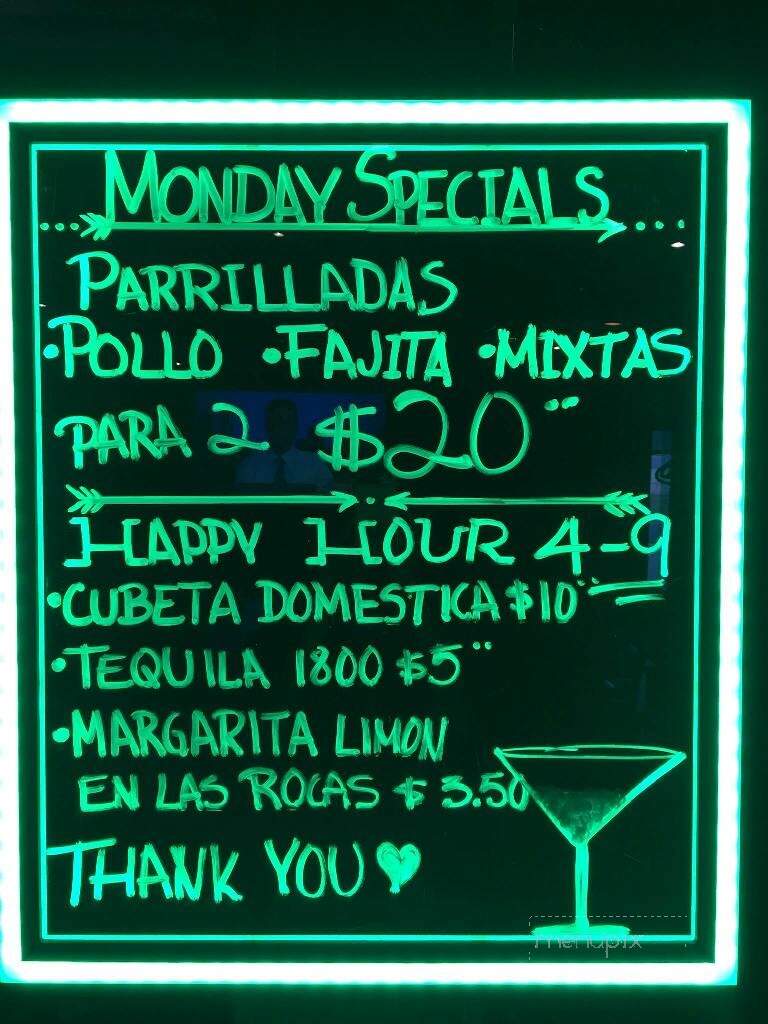 MONDAY SPECIALS
PARRILLADAS
•POLLO •FAJITA •MIXTAS
PARA 2 $20
HAPPY HOUR 4-9
•CUBETA DOMESTICA $10
•TEQUILA 1800 $5
•MARGARITA LIMON
EN LAS ROCAS $3.50
THANK YOU ♥
menupix